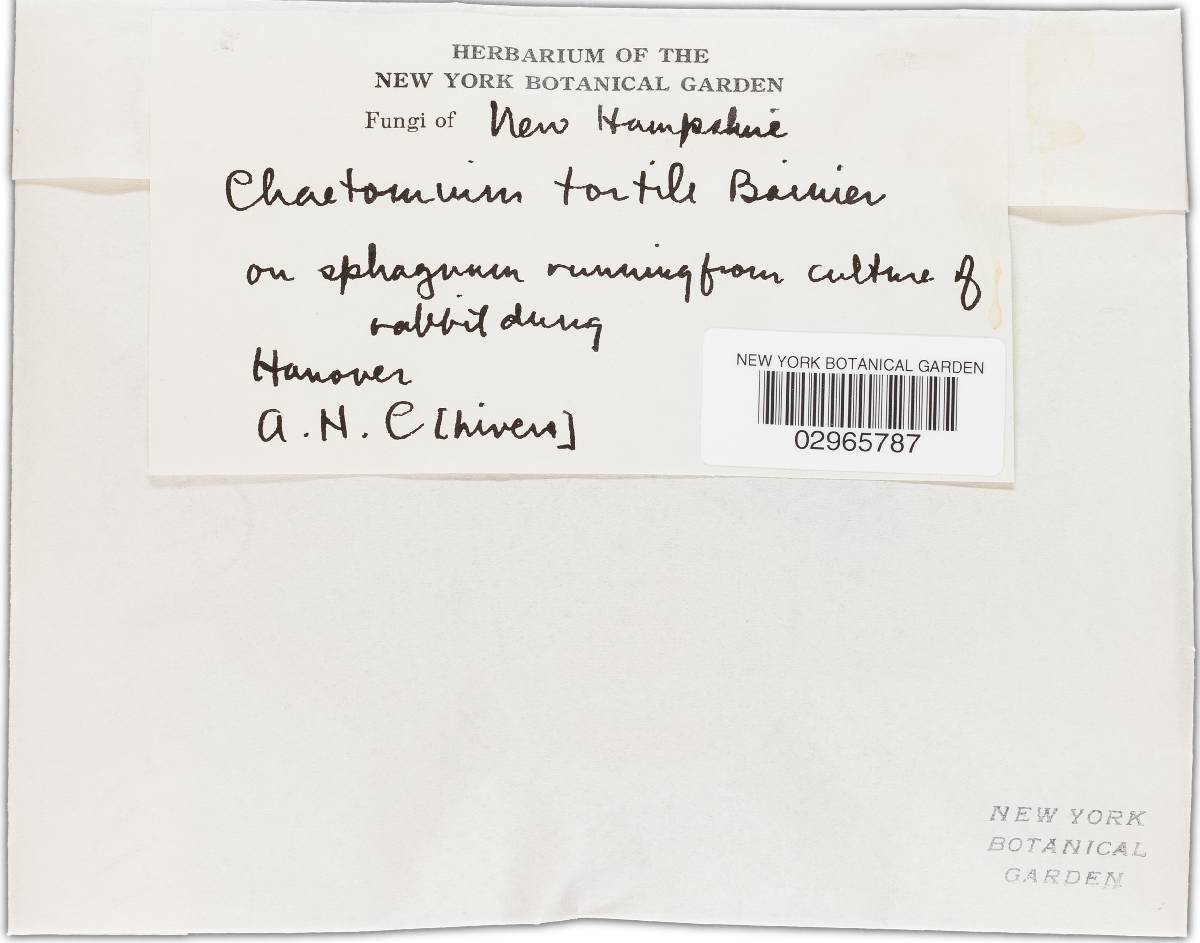 HERBARIUM OF THE
NEW YORK BOTANICAL GARDEN
Fungi of New Hampshire
Chaetomium tortile Bainier
on sphagnum running from culture of
rabbit dung
Hanover
A. H. C [hivers]
NEW YORK BOTANICAL GARDEN
02965787
NEW YORK
BOTANICAL
GARDEN